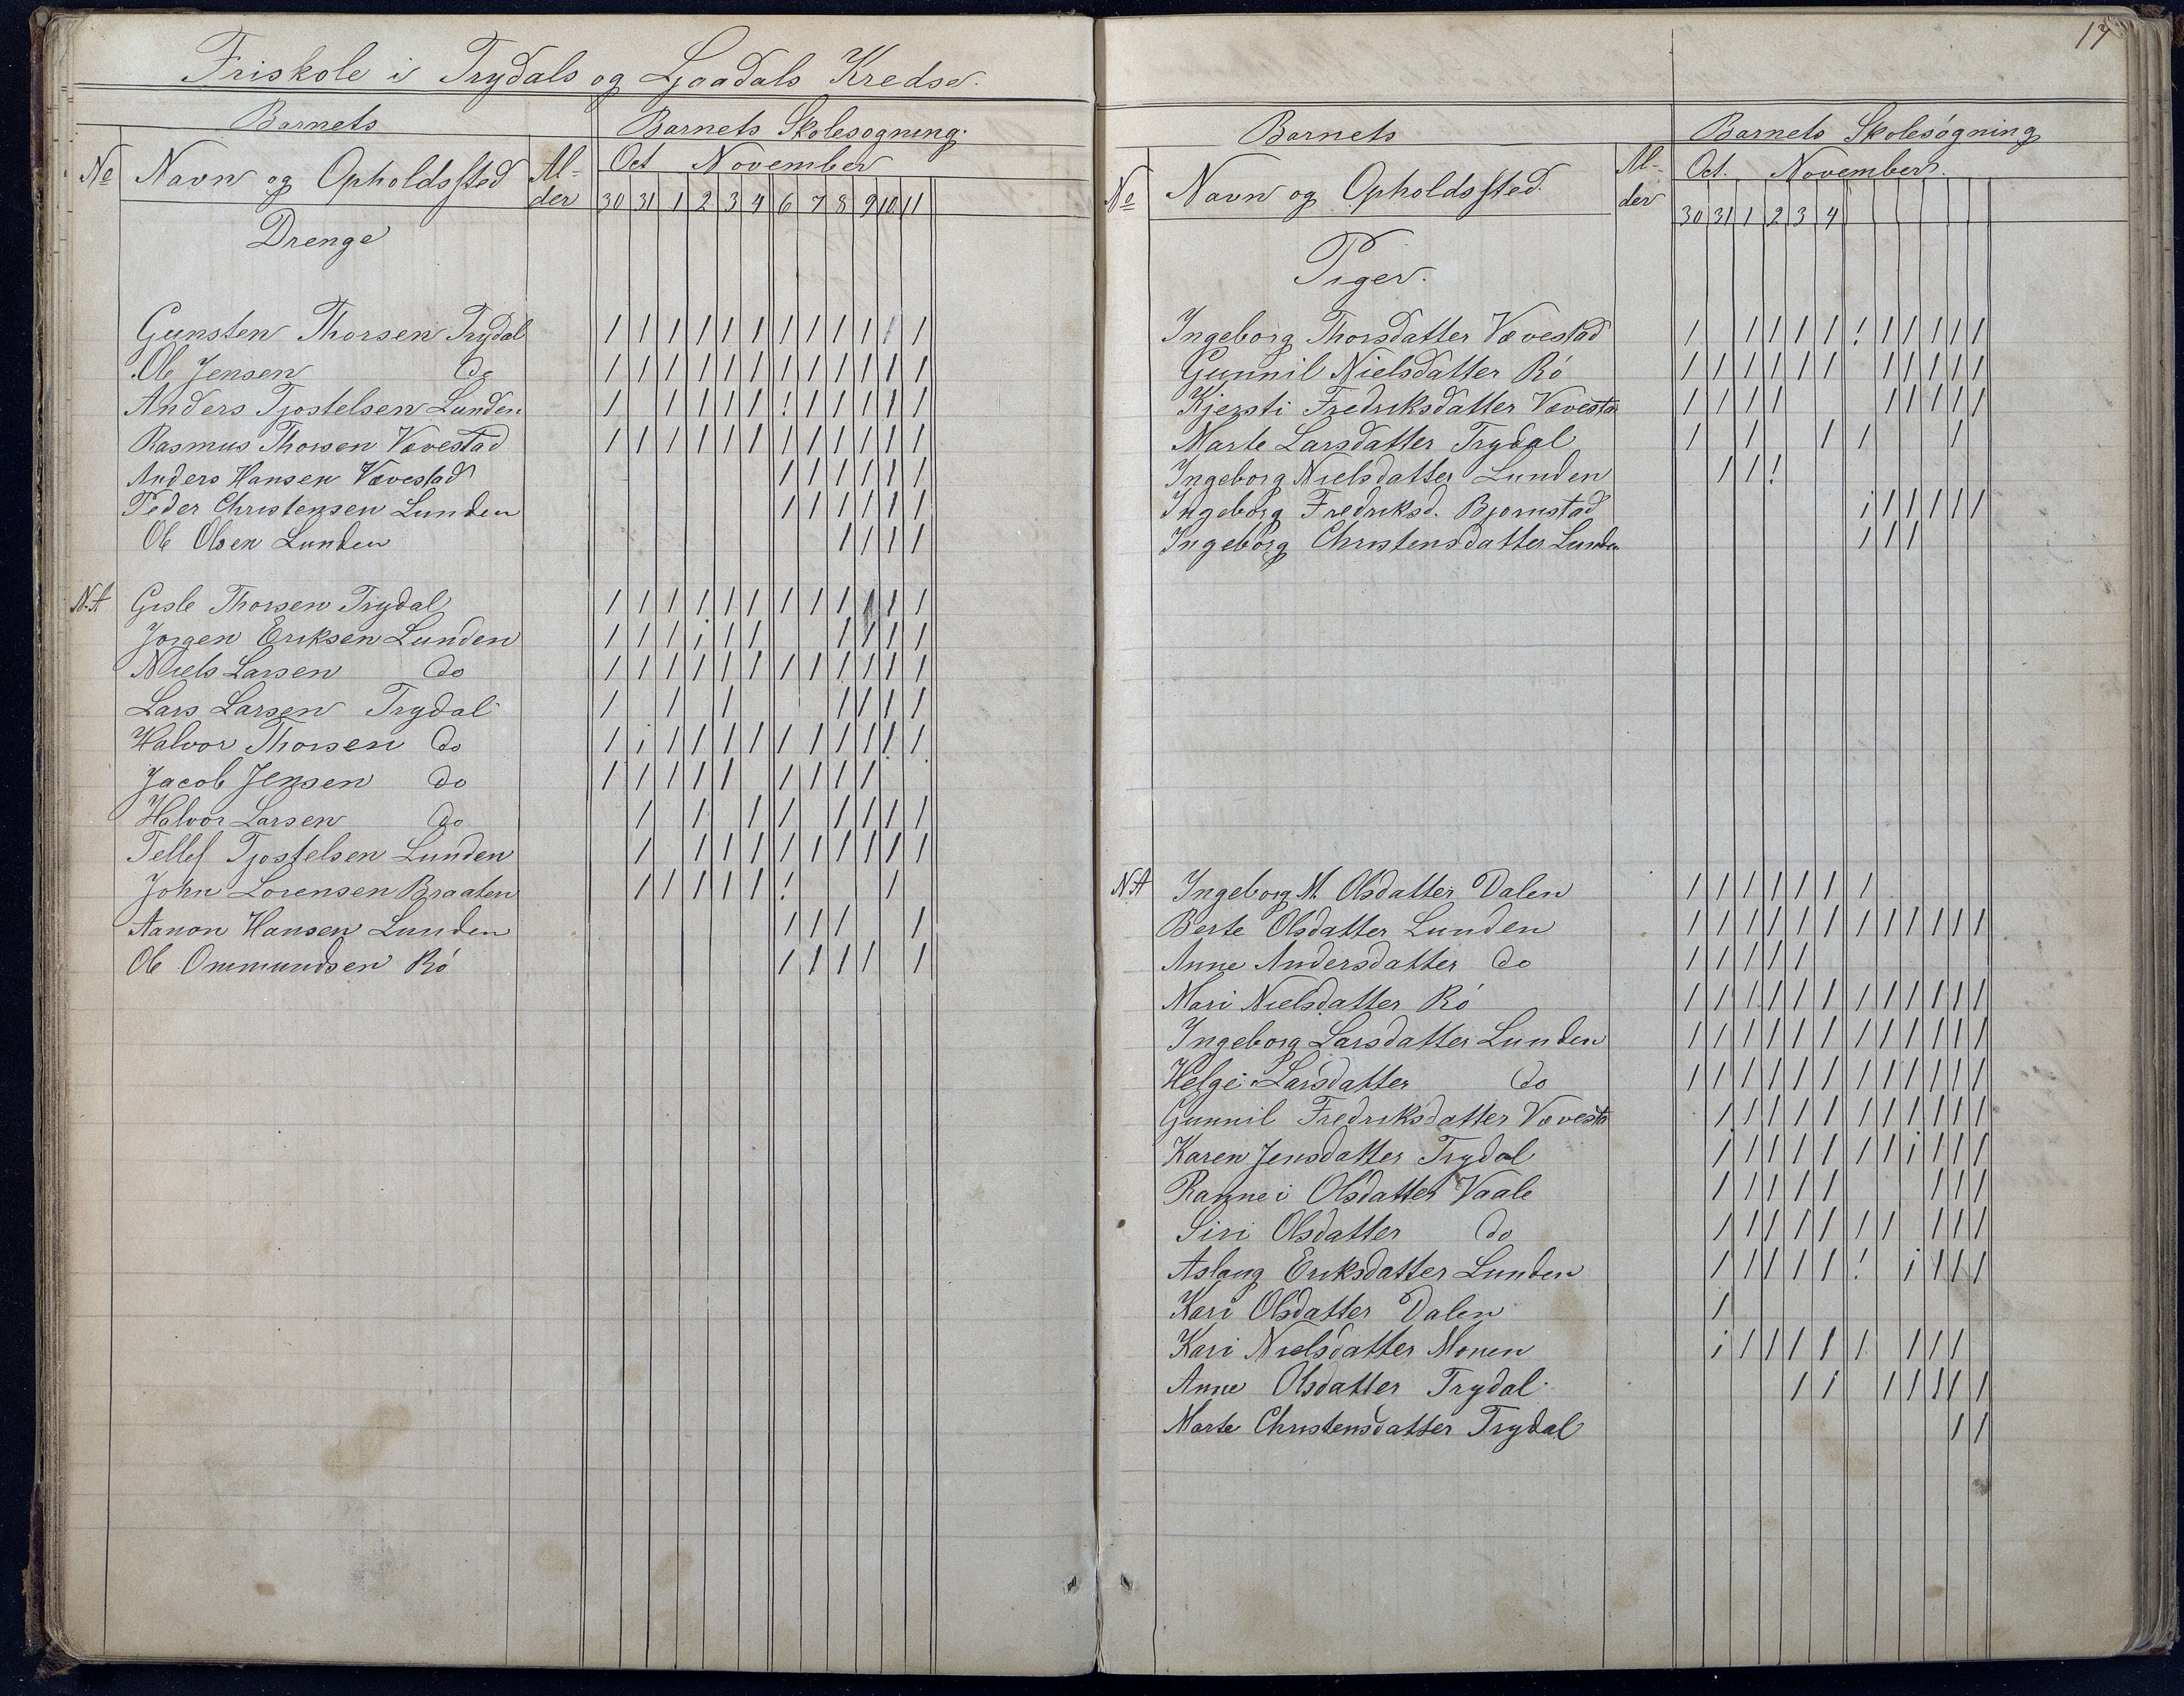 Friskole i Trydals og Ljaadals Kredse.
Barnets
Barnets Skolesogning.
No Navn og Opholdssted Al-der
Oct November
30 31 1 2 3 4 6 7 8 9 10 11
Drenge
Gunsten Thorsen Trydal / / / / / / / / / / / /
Ole Jensen do / / / / / / / / / / / /
Anders Tjostelsen Lunden / / / / / ! / / / / /
Rasmus Thorsen Vævestad / / / / / / / / / / / /
Anders Hansen Vævestad / / / / / /
Peder Christensen Lunden / / / / / /
Ole Olsen Lunden / / / /
N.A Gisle Thorsen Trydal / / / / / / / / / / / /
Jorgen Eriksen Lunden / / / / / / / / / /
Niels Larsen do / / / / / / / / / / / /
Lars Larsen Trydal / / / / / / /
Halvor Thorsen do / / / / / / / / / / / /
Jacob Jensen do / / / / / / / / /
Halvor Larsen do / / / / / / / /
Tellef Tjostelsen Lunden / / / / / / / / / /
John Lorensen Braaten / / / / / ! /
Aanon Hansen Lunden / / / /
Ole Ommundsen Rö / / / / /
17
Barnets
Barnets Skolesögning
No Navn og Opholdssted. Al-der
Oct. November.
30 31 1 2 3 4
Piger.
Ingeborg Thorsdatter Vævestad / / / / / ! / / / / /
Gunnil Nielsdatter Rö / / / / / / / / / / /
Kjersti Fredriksdatter Vævesta / / / / / / / / /
Marte Larsdatter Trydal / / / / /
Ingeborg Nielsdatter Lunden / / !
Ingeborg Fredriksd. Bjornstad / / / / / /
Ingeborg Christensdatter Lunden / / /
N.A Ingeborg M. Olsdatter Dalen / / / / / / /
Berte Olsdatter Lunden / / / / / / / / / / / /
Anne Andersdatter do / / / / /
Mari Nielsdatter Rö / / / / / / / / / / / /
Ingeborg Larsdatter Lunden / / / / / / / / / / / /
Helge Larsdatter do / / / / / / / / / / / /
Gunnil Fredriksdatter Vævesta / / / / / / / / / / /
Karen Jensdatter Trydal / / / / / / / / / / /
Rannei Olsdatter Vaale / / / / / / / /
Siri Olsdatter do / / / / / / / / / /
Aslaug Eriksdatter Lunden / / / / / ! / / / /
Kari Olsdatter Dalen /
Kari Nielsdatter Monen / / / / / / / / /
Anne Olsdatter Trydal / / / / / / /
Marte Christensdatter Trydal / /